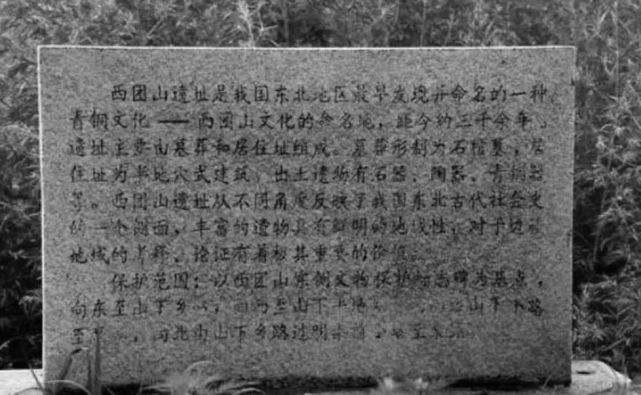 西团山遗址是我国东北地区最早发现并命名的一种
青铜文化——西团山文化的命名地，距今约三千余年。
遗址主要由墓葬和居住址组成。墓葬形制为石棺墓，居
住址为半地穴式建筑，出土遗物有石器、陶器、青铜器
等。西团山遗址从不同角度反映了我国东北古代社会史
的一个侧面，丰富的遗物具有鲜明的地域性，对于边疆
地域的考释、论证有着极其重要的价值。
保护范围：以西团山东侧文物保护标志碑为基点，
向东至山下乡，向西至山下，山下乡路
至，向北由山下乡路过明